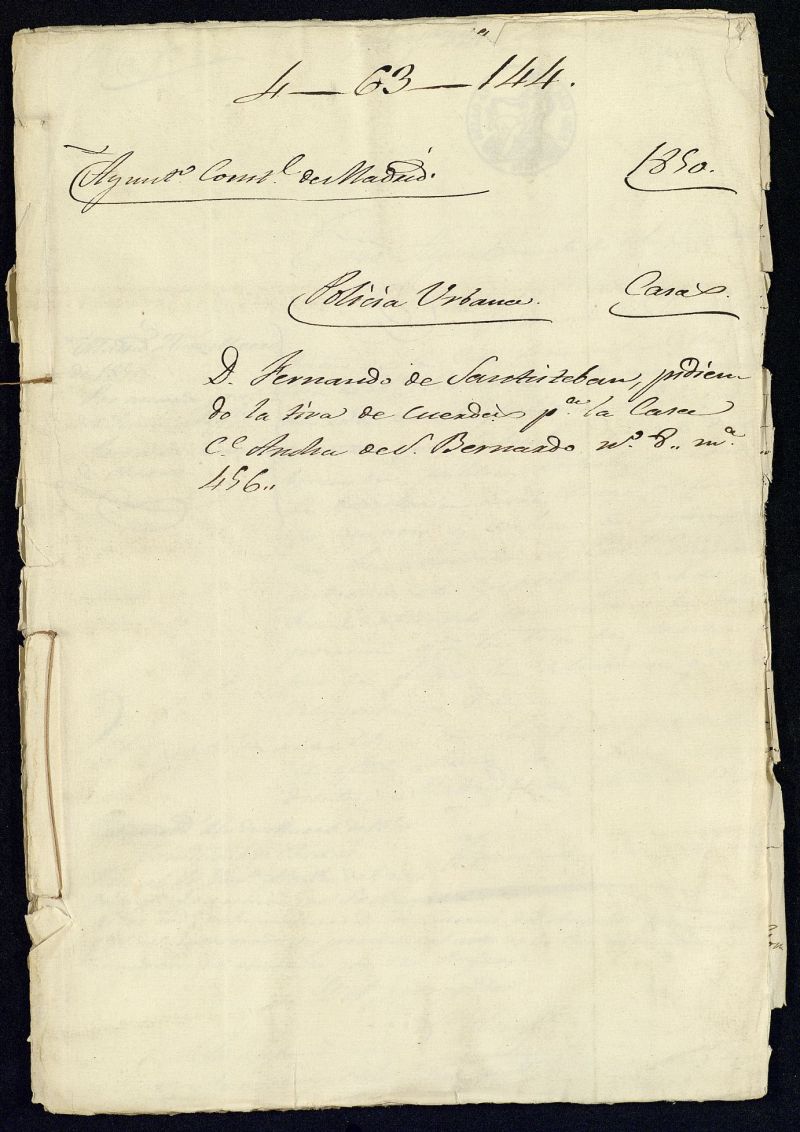 4 — 63 — 144.
Ayunt.º Const.l de Madrid. 1850.
Policia Urbana. Casas.
D. Fernando de Santisteban, pidien-
do la tira de cuerdas p.ª la Casa
C.e Ancha de S. Bernardo n.º 8,, m.ª
456,,